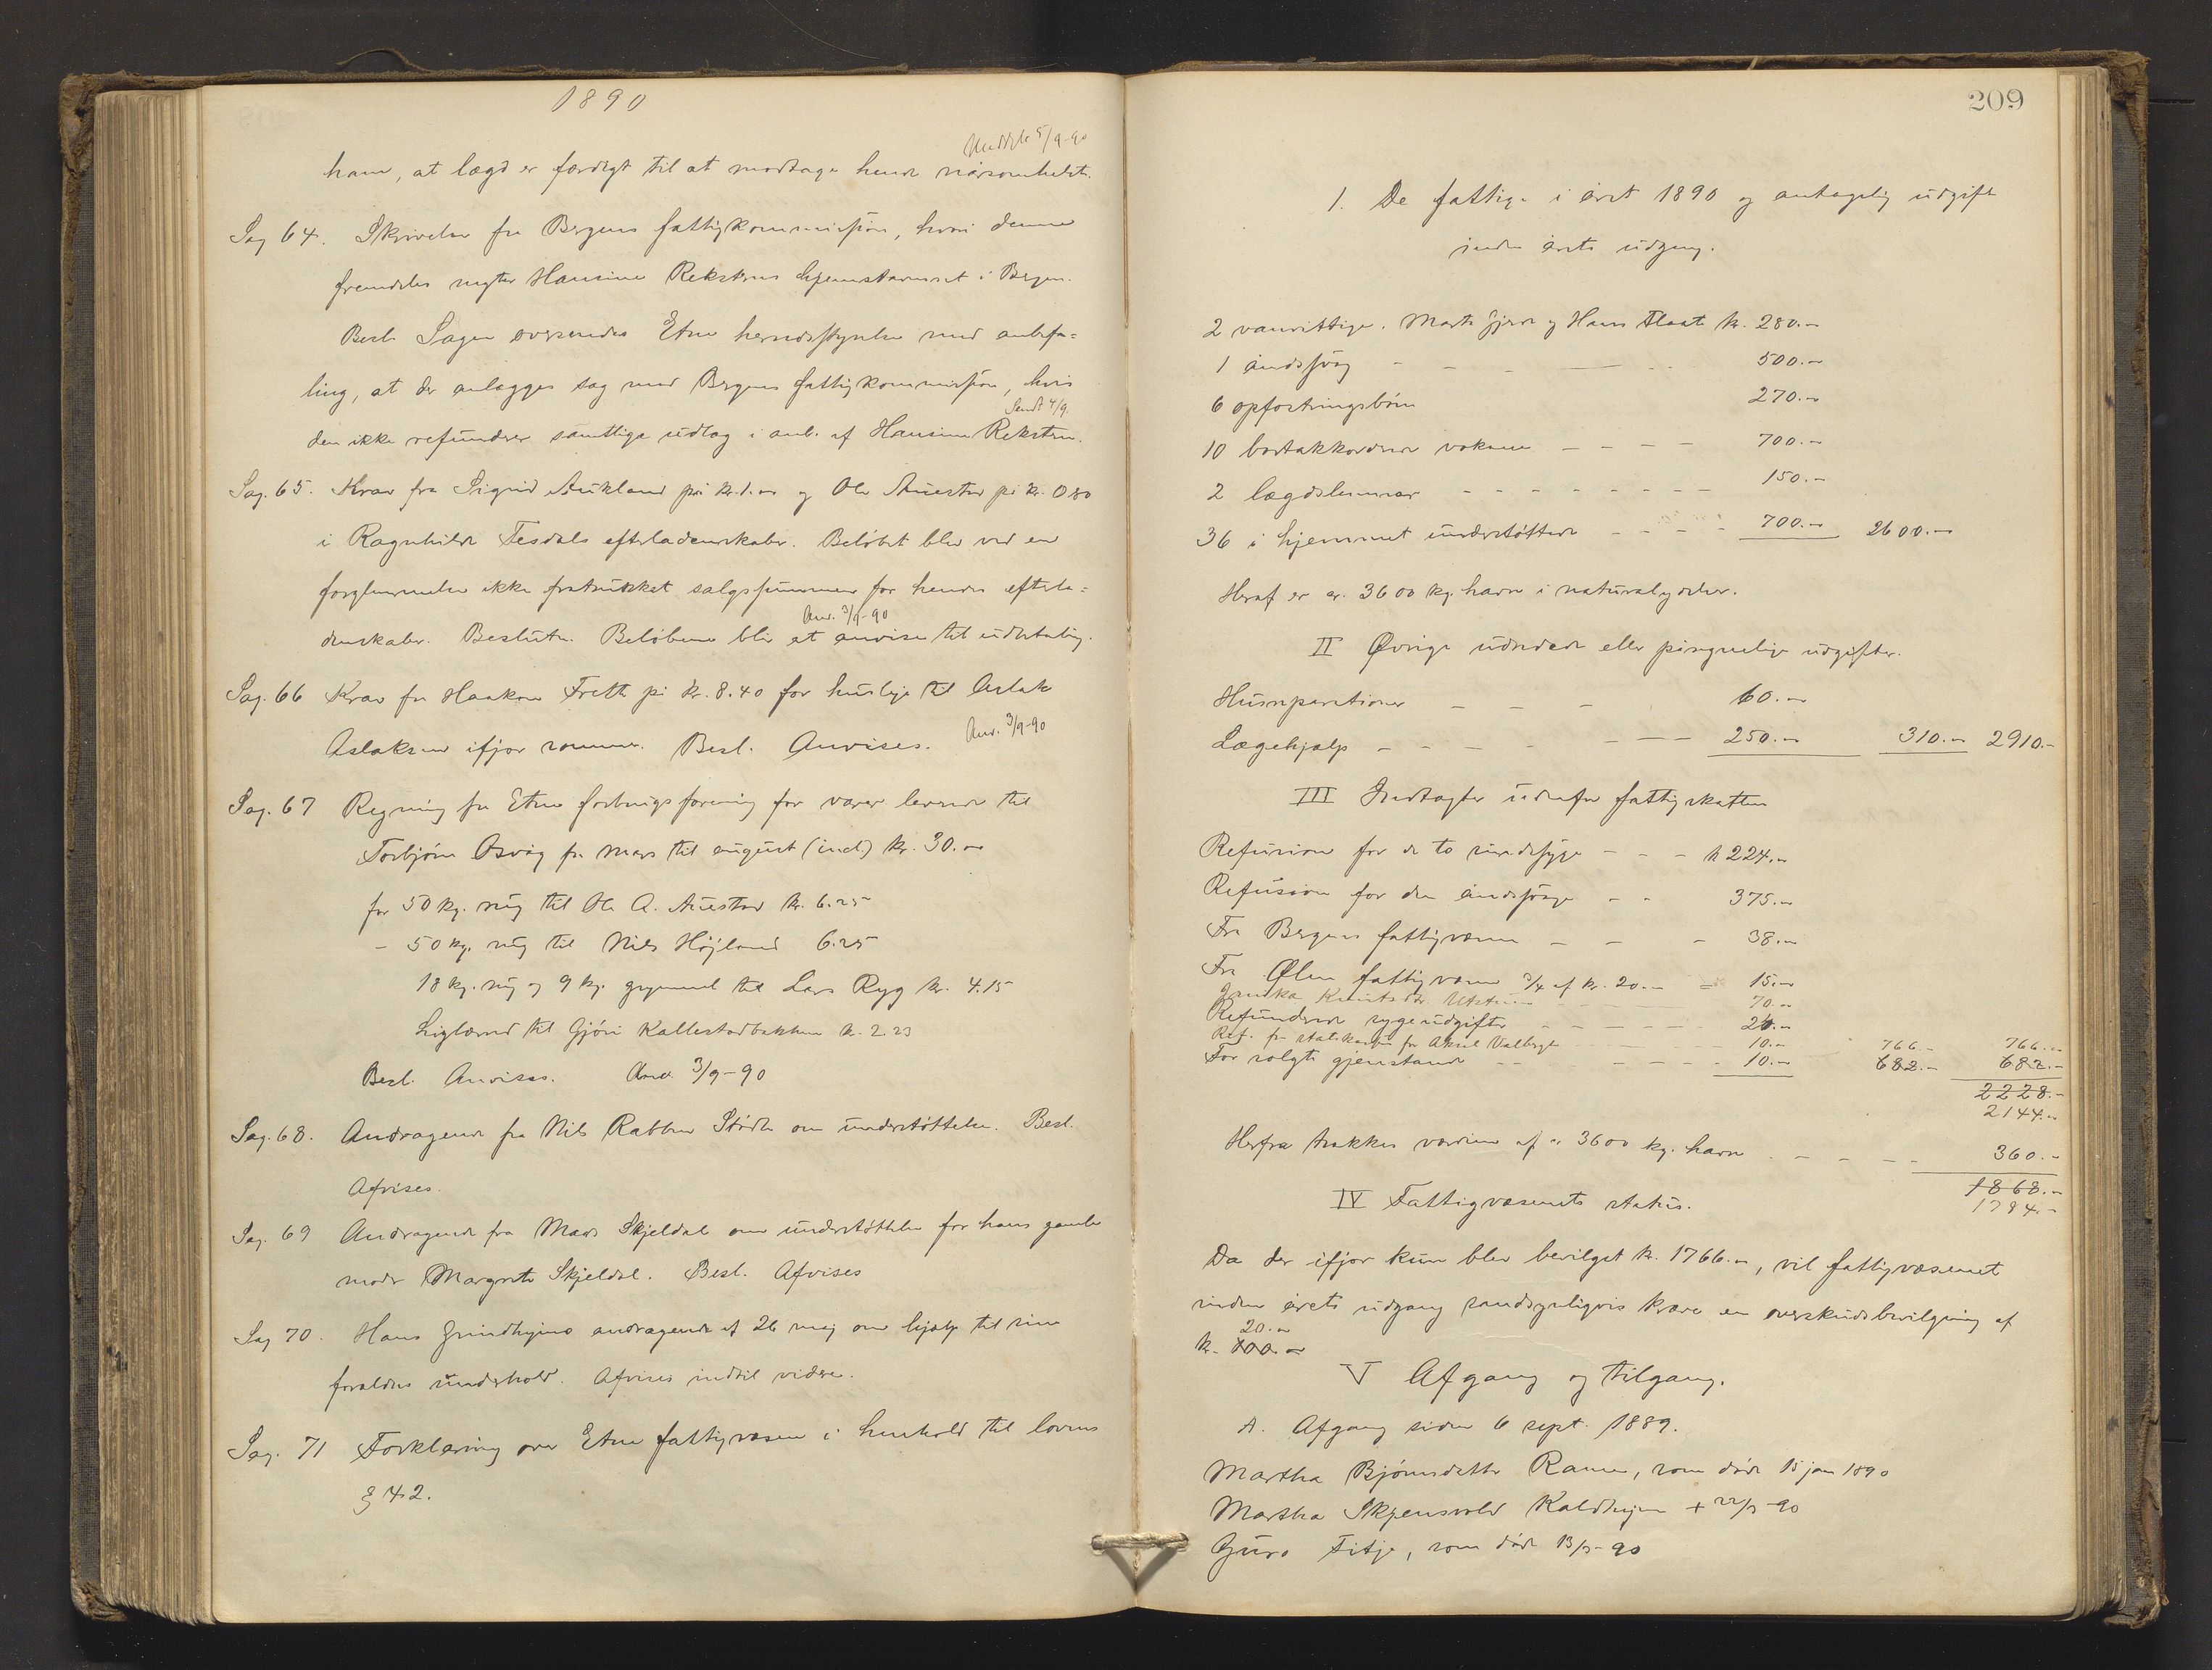 1890
Meddelt 5/9-90
ham, at lægd er færdigt til at modtage hende nårsomhelst.
Sag 64. Skrivelse fra Bergens fattigkommission, hvori denne
fremdeles nægter Hansine Rekstens hjemstavnsret i Bergen.
Besl. Sagen oversendes Etne herredsstyrelse med anbefa-
ling, at der anlægges sag mod Bergens fattigkommission, hvis
Sendt 4/9.
den ikke refunderer samtlige udlæg i anl. af Hansine Reksten.
Sag. 65. Krav fra Sigrid Aukland på kr. 1.00 og Ole Auestad på kr. 0.80
i Ragnhilde Tesdals efterladenskaber. Beløbet blev ved en
forglemmelse ikke fratrukket salgssummen for hendes efterla-
Anv. 3/9-90
denskaber. Beslutn. Beløbene blir at anvise til udbetaling.
Sag. 66 Krav fra Haakon Frette på kr. 8.40 for husleje til Aslak
Aslaksen ifjor sommer. Besl. Anvises. Anv. 3/9-90
Sag. 67 Regning fra Etne forbrugsforening for varer leveret til
Torbjørn Osvåg fra mars til august (incl.) kr. 30.00
for 50 kg. rug til Ole A. Auestad kr. 6.25
- 50 kg. rug til Nils Højland 6.25
18 kg. rug og 9 kg. grynmel til Lars Ryg kr. 4.15
Liglærred til Gjøri Kallestadbakken kr. 2.23
Besl. Anvises. Anv. 3/9-90
Sag. 68. Andragende fra Nils Rabben Stødle om understøttelse. Besl.
Afvises.
Sag. 69 Andragende fra Mads Skjeldal om understøttelse for hans gamle
moder Margrete Skjeldal. Besl. Afvises
Sag 70. Hans Grindheims andragende af 26 maj om hjælp til sine
forældres underhold. Afvises indtil videre.
Sag. 71 Forklaring over Etne fattigvæsen i henhold til lovens
§ 42.
209
1. De fattige i året 1890 og antagelig udgift
inden årets udgang.
2 vanvittige. Marte Gjerde og Hans Flaate kr. 280.-
1 åndssvag - - - 500.-
6 opfostringsbørn 270.-
10 bortakkorderede voksne - - - - 700.-
2 lægdslemmer - - - - - - - - 150.-
36 i hjemmet understøttede - - - - 700.- 2600.-
Heraf er ca. 3600 kg. havre i naturalydelser.
II Øvrige udredede eller påregnelige udgifter.
Husreparationer - - - 60.-
Lægehjælp - - - - - - - 250.- 310.- 2910.-
III Indtægter udenfor fattigskatten
Refusion for de to sindssyge - - - kr 224.-
Refusion for den åndssvage - - 375.-
Fra Bergens fattigvæsen - - - 38.-
Fra Ølen fattigvæsen 3/4 af kr. 20.- = 15.-
70.-
Refunderede sygeudgifter - - - - - 24.-
Ref. fra statskassen for Aksel Valberg 10.- 766.- 766.-
For solgte gjenstande - - - - - - 10.- 682.- 682.-
2228.-
2144.-
Herfra trækkes værdien af ca 3600 kg. havre - - - - 360.-
1868.-
1784.-
IV Fattigvæsenets status.
Da der ifjor kun blev bevilget kr. 1766.-, vil fattigvæsenet
inden årets udgang sandsynligvis kræve en overskudsbevilgning af
20.-
kr. 100.-
V Afgang og tilgang.
A. Afgang siden 6 sept. 1889.
Martha Bjørnsdatter Ramn, som døde 15 jan 1890
Martha Skjensvold Kaldheim + 22/3-90
Guro Fitje, som døde 13/5-90